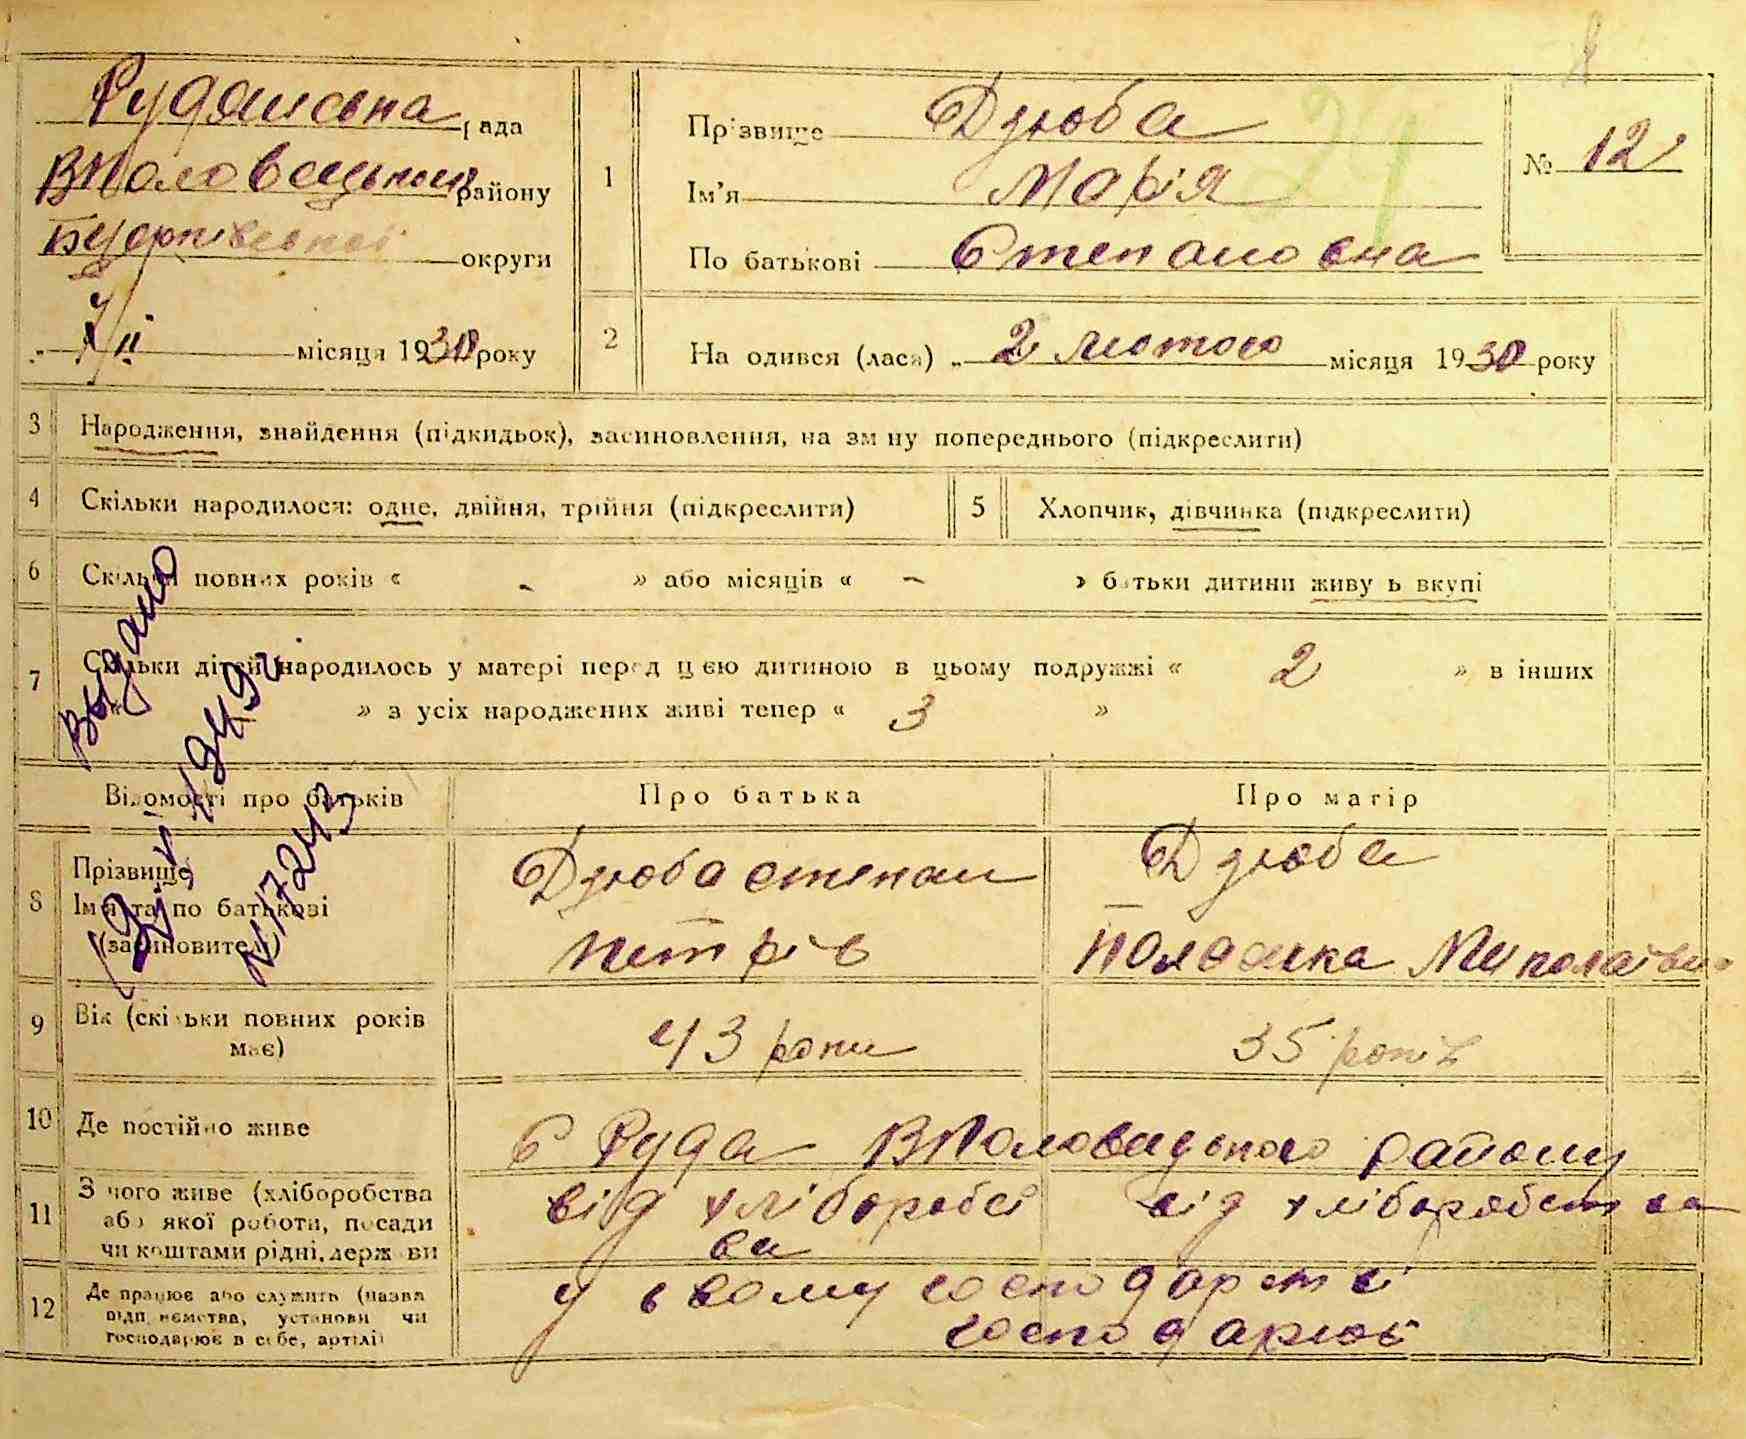 Рудянська рада
ВПоловецького району
округи
7/ІІ місяця 1930 року
1
Прізвище Дзюба
Ім'я Марія
По батькові Степановна
№ 12
2
Народився (лася) „ 2 лютого місяця 1930 року
3 Народження, знайдення (підкидьок), засиновлення, на зміну попереднього (підкреслити)
4 Скільки народилося: одне, двійня, трійня (підкреслити)
5 Хлопчик, дівчинка (підкреслити)
6 Скільки повних років « - » або місяців « - » батьки дитини живуть вкупі
7 Скільки дітей народилось у матері перед цією дитиною в цьому подружжі « 2 » в інших
« » з усіх народжених живі тепер « 3 »
Выдано
1949 г
N 17243
Відомості про батьків
Про батька
Про матір
8 Прізвище
Ім'я та по батькові
(засиновителі)
Дзюба Степан
Петрів
Дзюба
Палажка Миколаївна
9 Вік (скільки повних років
має)
43 роки
35 років
10 Де постійно живе
С Руда ВПоловецького району
11 З чого живе (хліборобства
або якої роботи, посади
чи коштами рідні, держави
від хліборобст
ва
від хліборобства
12 Де працює або служить (назва
підприємства, установи чи
господарює в себе, артілі)
у свому господарстві
господарює